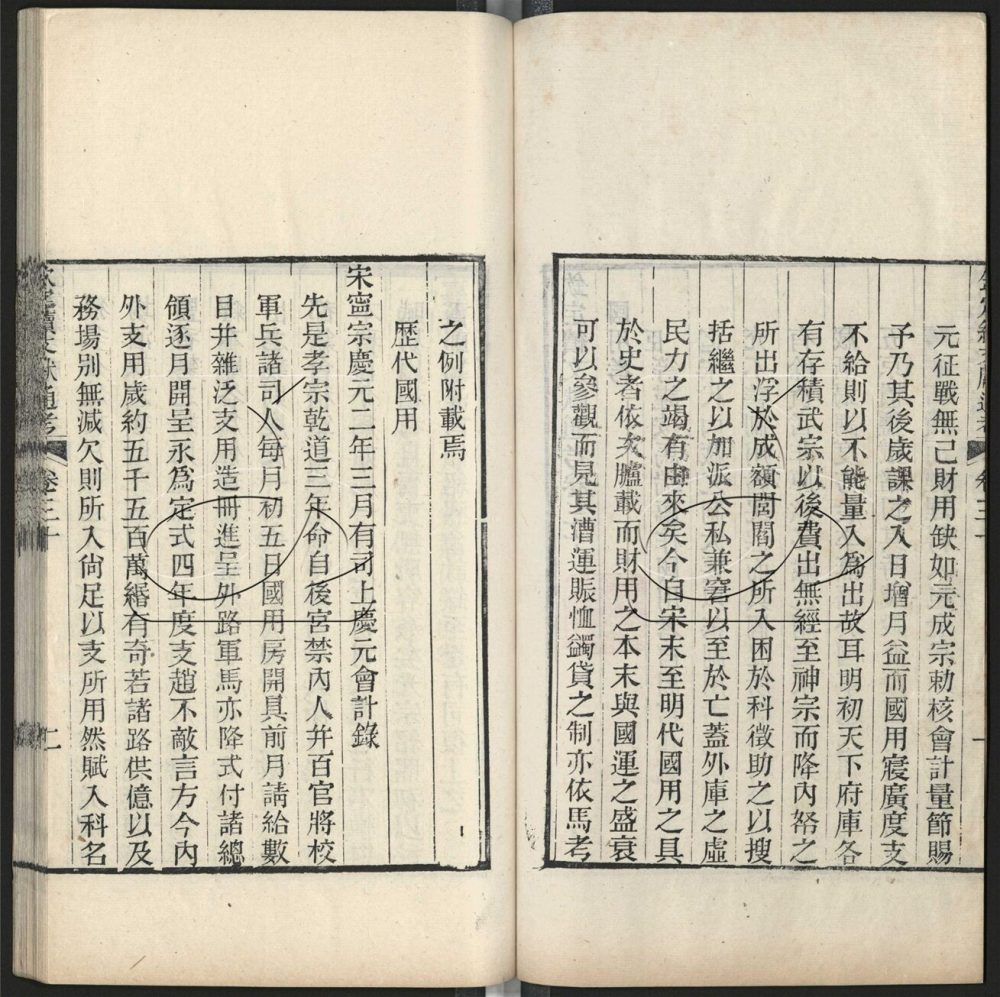 元征戰無已財用缺如元成宗勅核會計量節賜
予乃其後歲課之入日增月益而國用寖廣度支
不給則以不能量入為出故耳明初天下府庫各
有存積武宗以後費出無經至神宗而降內帑之
所出浮於成額閭閻之所入困於科徵助之以搜
括繼之以加派公私兼窘以至於亡蓋外庫之虛
民力之竭有由來矣今自宋末至明代國用之具
於史者依次臚載而財用之本末與國運之盛衰
可以參觀而見其漕運賑恤蠲貸之制亦依馬考
之例附載焉
歷代國用
宋寧宗慶元二年三月有司上慶元會計錄
先是孝宗乾道三年命自後宮禁內人并百官將校
軍兵諸司人每月初五日國用房開具前月請給數
目并雜泛支用造冊進呈外路軍馬亦降式付諸總
領逐月開呈永爲定式四年度支趙不敵言方今內
外支用歲約五千五百萬緡有奇若諸路供億以及
務場別無減欠則所入尙足以支所用然賦入科名
欽定續文獻通考
卷三十